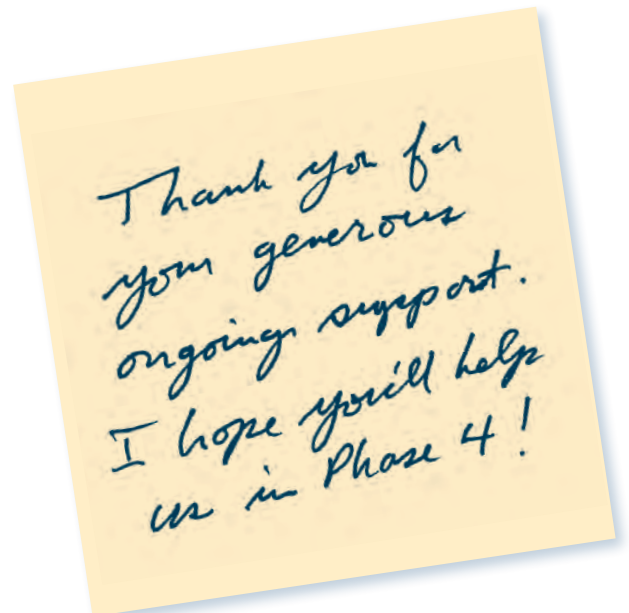 Thank you for
your generous
ongoing support.
I hope you'll help
us in Phase 4!